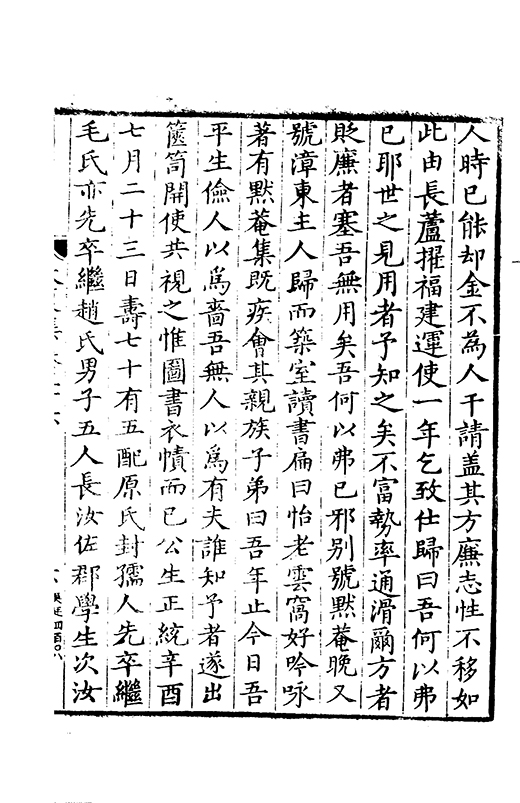 人時已能却金不為人干請盖其方廉志性不移如
此由長蘆擢福建運使一年乞致仕歸曰吾何以弗
已耶世之見用者予知之矣不富勢率通滑爾方者
貶廉者塞吾無用矣吾何以弗已邪别號默菴晚又
號漳東主人歸而築室讀書扁曰怡老雲窩好吟咏
著有默菴集既疾會其親族子弟曰吾年止今日吾
平生儉人以爲嗇吾無人以爲有夫誰知予者遂出
篋笥開使共視之惟圖書衣幘而已公生正統辛酉
七月二十三日壽七十有五配原氏封孺人先卒繼
毛氏亦先卒繼趙氏男子五人長汝佐郡學生次汝